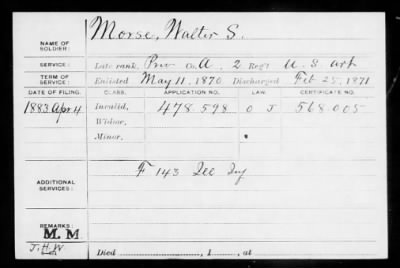 NAME OF SOLDIER: Morse, Walter S.
SERVICE: Late rank, Priv Co. A, 2 Reg't U.S. art
TERM OF SERVICE: Enlisted May 11, 1870 Discharged Feb 25, 1871
DATE OF FILING. CLASS. APPLICATION NO. LAW. CERTIFICATE NO.
1883 Apr 4 Invalid, 478 598 O J 568 005
Widow,
Minor,
F 143
ADDITIONAL SERVICES:
REMARKS:
M. M
J.H.W.
Died , 1 , at